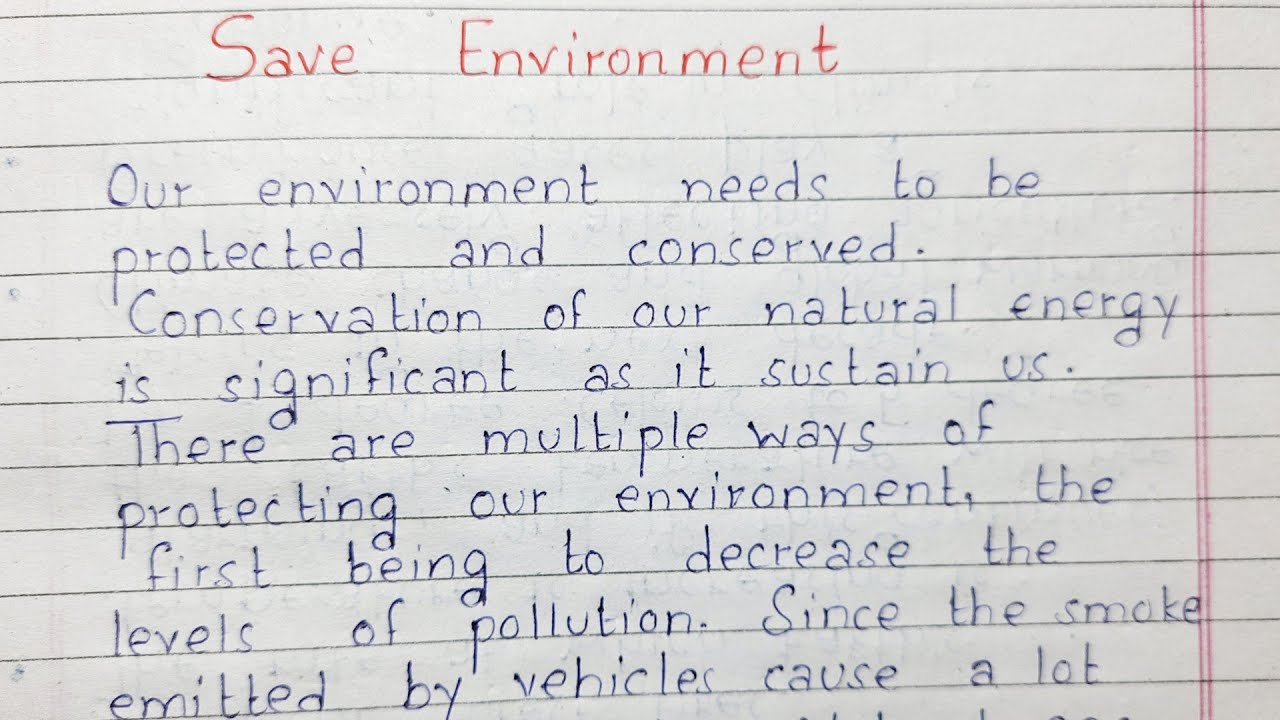 Save Environment
Our environment needs to be
protected and conserved.
Conservation of our natural energy
is significant as it sustain us.
There are multiple ways of
protecting our environment, the
first being to decrease the
levels of pollution. Since the smoke
emitted by vehicles cause a lot